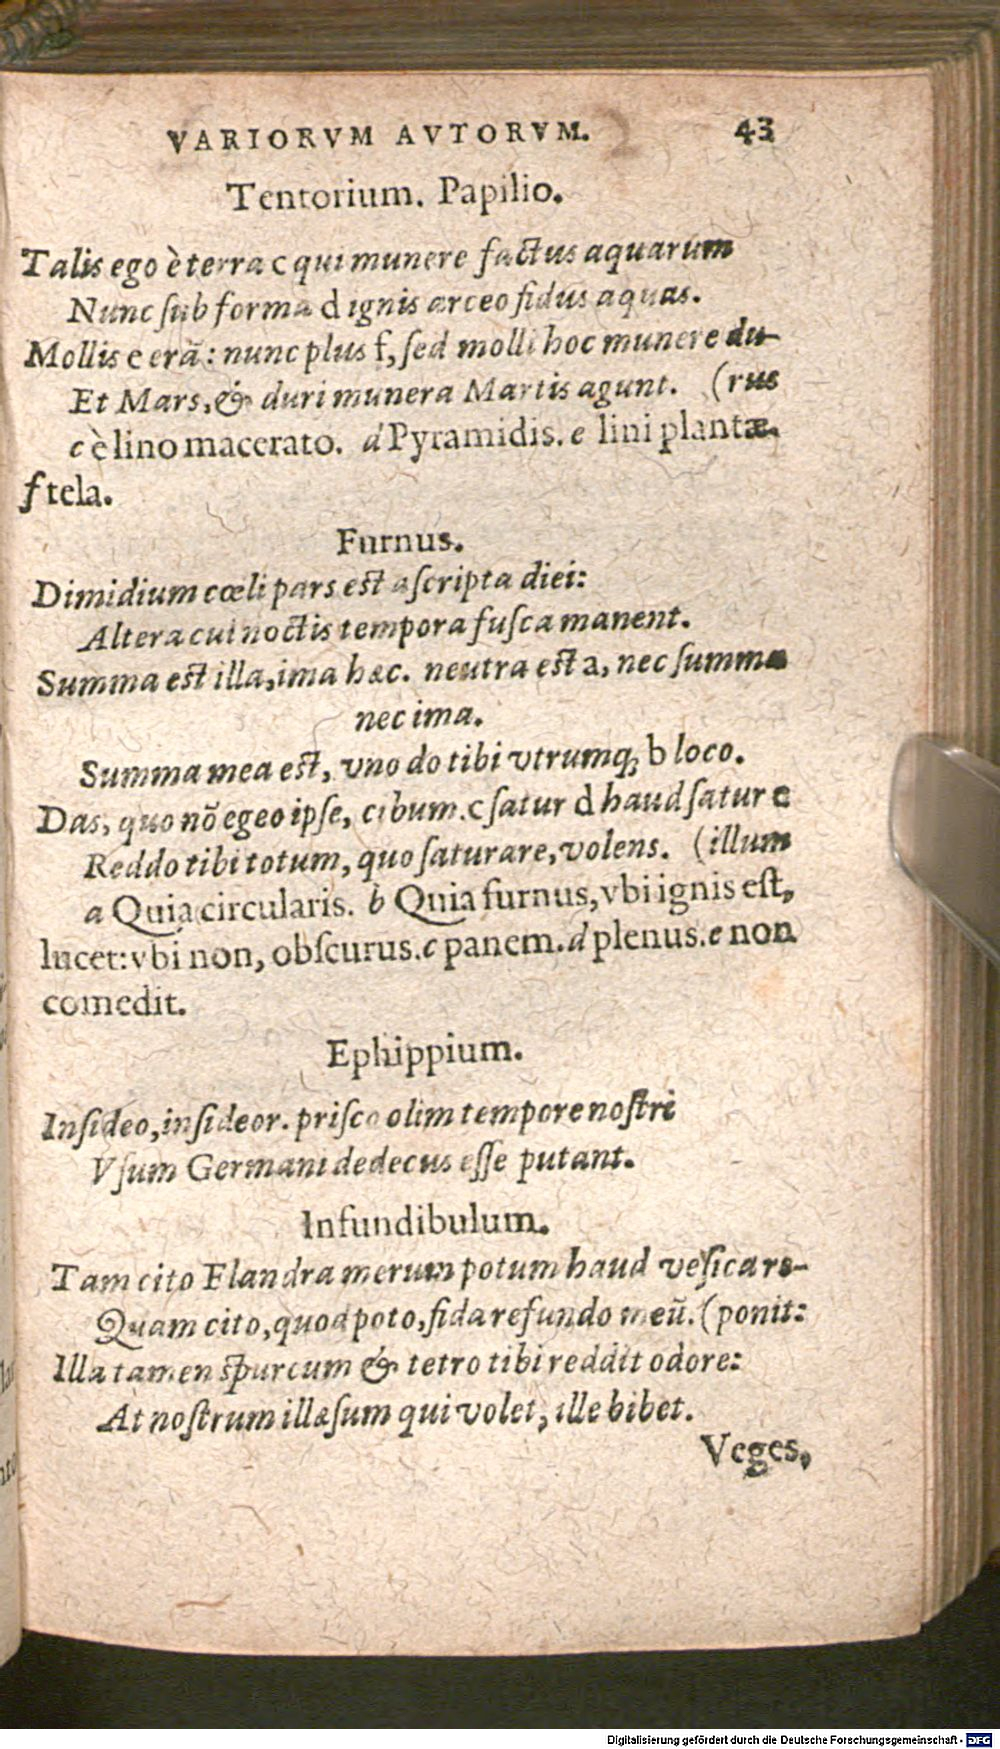 VARIORVM AVTORVM. 43
Tentorium. Papilio.
Talis ego è terra c qui munere factus aquarum
Nunc sub forma d ignis arceo fidus aquas.
Mollis e erã: nunc plus f, sed molli hoc munere du-
Et Mars, & duri munera Martis agunt. (rus
c è lino macerato. d Pyramidis. e lini plantæ.
f tela.
Furnus.
Dimidium cœli pars est ascripta diei:
Altera cui noctis tempora fusca manent.
Summa est illa, ima hæc. neutra est a, nec summa
nec ima.
Summa mea est, vno do tibi vtrumq; b loco.
Das, quo nõ egeo ipse, cibum. c satur d haud satur e
Reddo tibi totum, quo saturare, volens. (illum
a Quia circularis. b Quia furnus, vbi ignis est,
lucet: vbi non, obscurus. c panem. d plenus. e non
comedit.
Ephippium.
Insideo, insideor. prisco olim tempore nostri
Vsum Germani dedecus esse putant.
Infundibulum.
Tam cito Flandra merum potum haud vesica re-
Quam cito, quod poto, fida refundo meũ. (ponit:
Illa tamen spurcum & tetro tibi reddit odore:
At nostrum illæsum qui volet, ille bibet.
Veges,
Digitalisierung gefördert durch die Deutsche Forschungsgemeinschaft - DFG